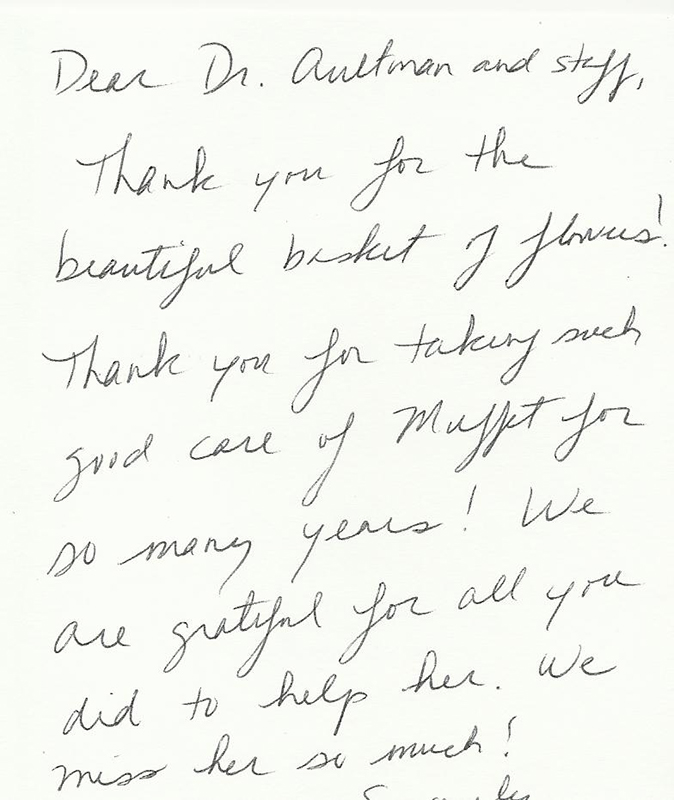 Dear Dr. Aultman and staff,
Thank you for the
beautiful basket of flowers!
Thank you for taking such
good care of Muffet for
so many years! We
are grateful for all you
did to help her. We
miss her so much!